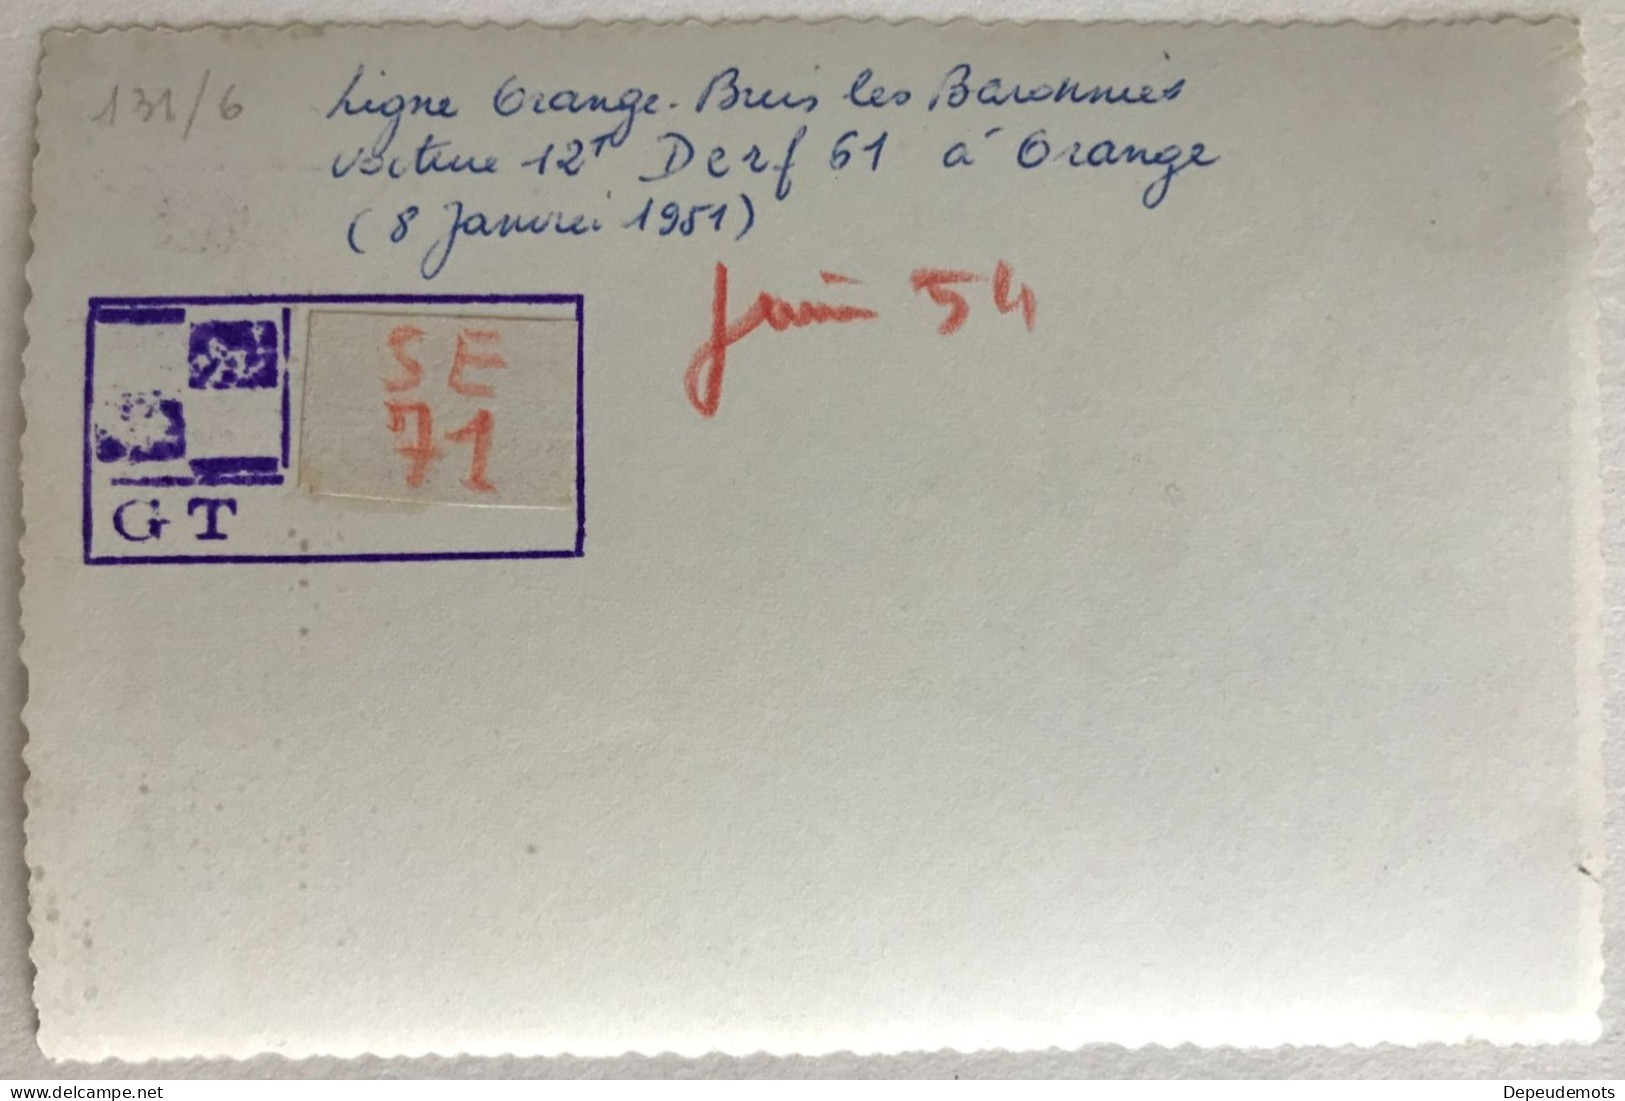 131/6
Ligne Orange-Buis les Baronnies
voiture 12T Derf 61 à Orange
(8 Janvier 1951)
Juin 54
SE
71
GT
delcampe.net
Depeudemots